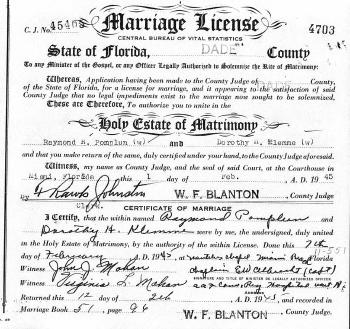 C. J. No. 45468 Marriage License 4703
CENTRAL BUREAU OF VITAL STATISTICS
State of Florida, DADE County
To any Minister of the Gospel, or any Officer Legally Authorized to Solemnize the Rite of Matrimony:
Whereas, Application having been made to the County Judge of DADE County,
of the State of Florida, for a license for marriage, and it appearing to the satisfaction of said
County Judge that no legal impediments exist to the marriage now sought to be solemnized.
These are Therefore, To authorize you to unite in the
Holy Estate of Matrimony
Raymond Pomplun (w) and Dorothy H. Klemme (w)
and that you make return of the same, duly certified under your hand, to the County Judge aforesaid.
Witness, my name as County Judge, and the seal of said Court, at the Courthouse in
Miami, Florida this 1 day of Feb. A. D. 1945
Johnston W. F. BLANTON
Clerk.
CERTIFICATE OF MARRIAGE
I Certify, that the within named Raymond Pomplun
and Dorothy H. Klemme were by me, the undersigned, duly united
in the Holy Estate of Matrimony, by the authority of the within License. Done this 7th
day of February A. D. 1945, at Miami Florida
Witness John J. Mohan Chaplain E W Albrecht (capt)
SIGNATURE AND TITLE OF MINISTER OR LEGALLY AUTHORIZED OFFICER
Witness Virginia L. Mohan Hospital
Returned this 12 day of Feb A. D. 1945, and recorded in
Marriage Book 51 page 96
W. F. BLANTON